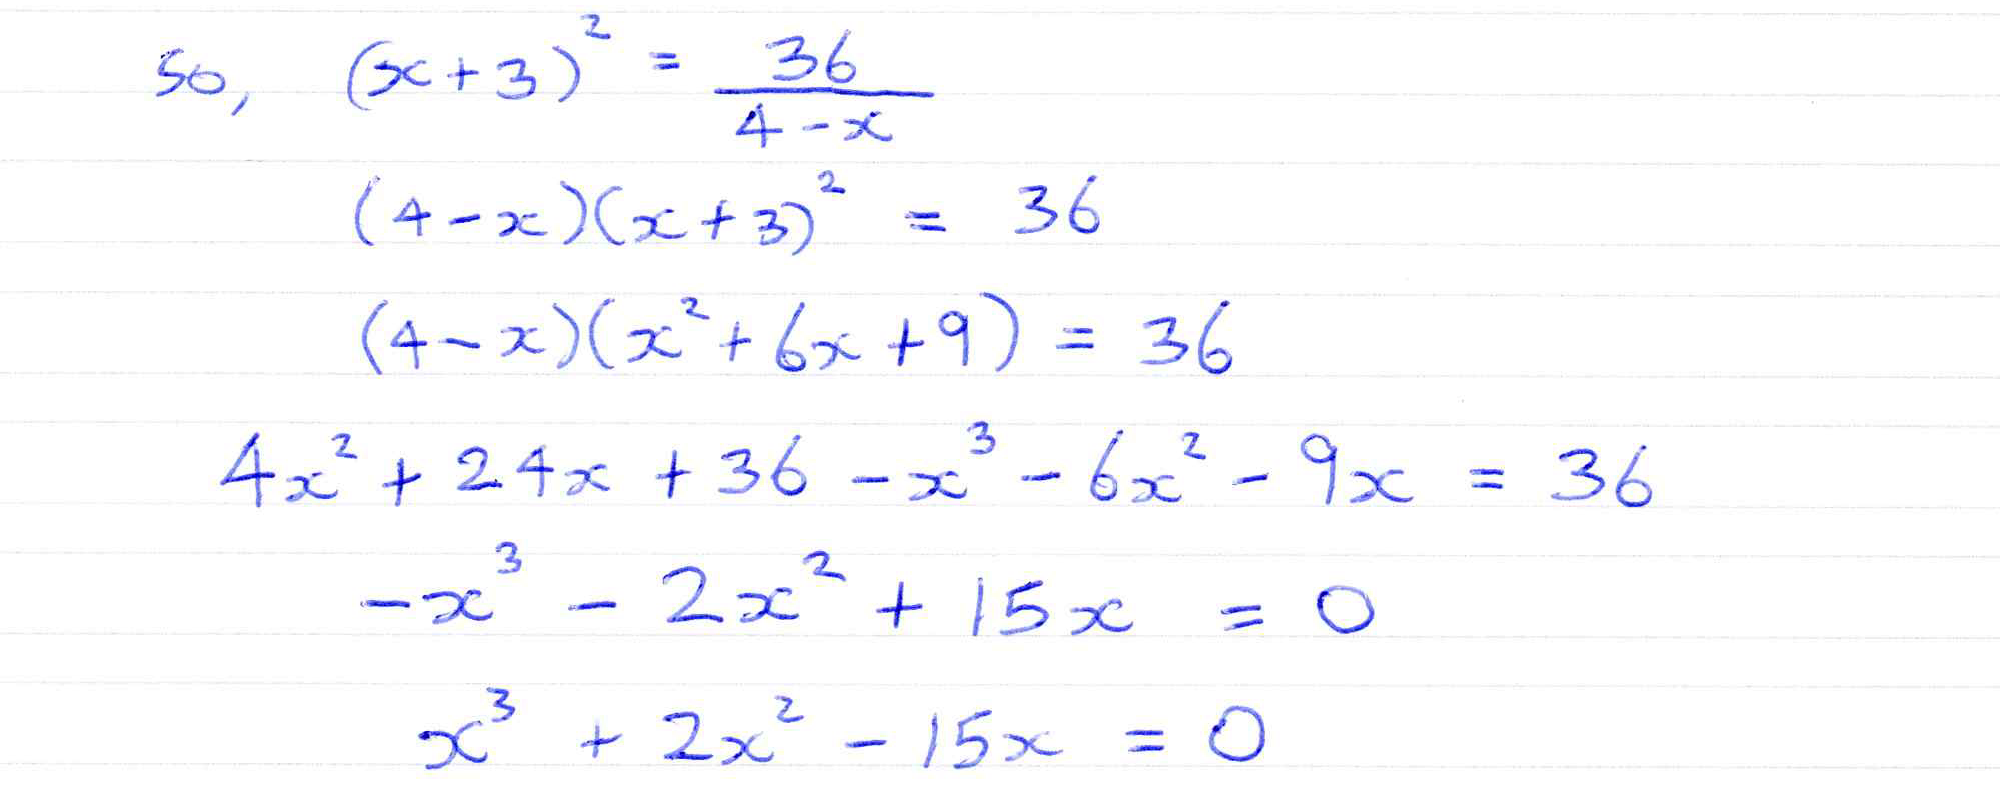 so, (x+3)² = 36/(4-x)
(4-x)(x+3)² = 36
(4-x)(x²+6x+9) = 36
4x² + 24x + 36 - x³ - 6x² - 9x = 36
-x³ - 2x² + 15x = 0
x³ + 2x² - 15x = 0